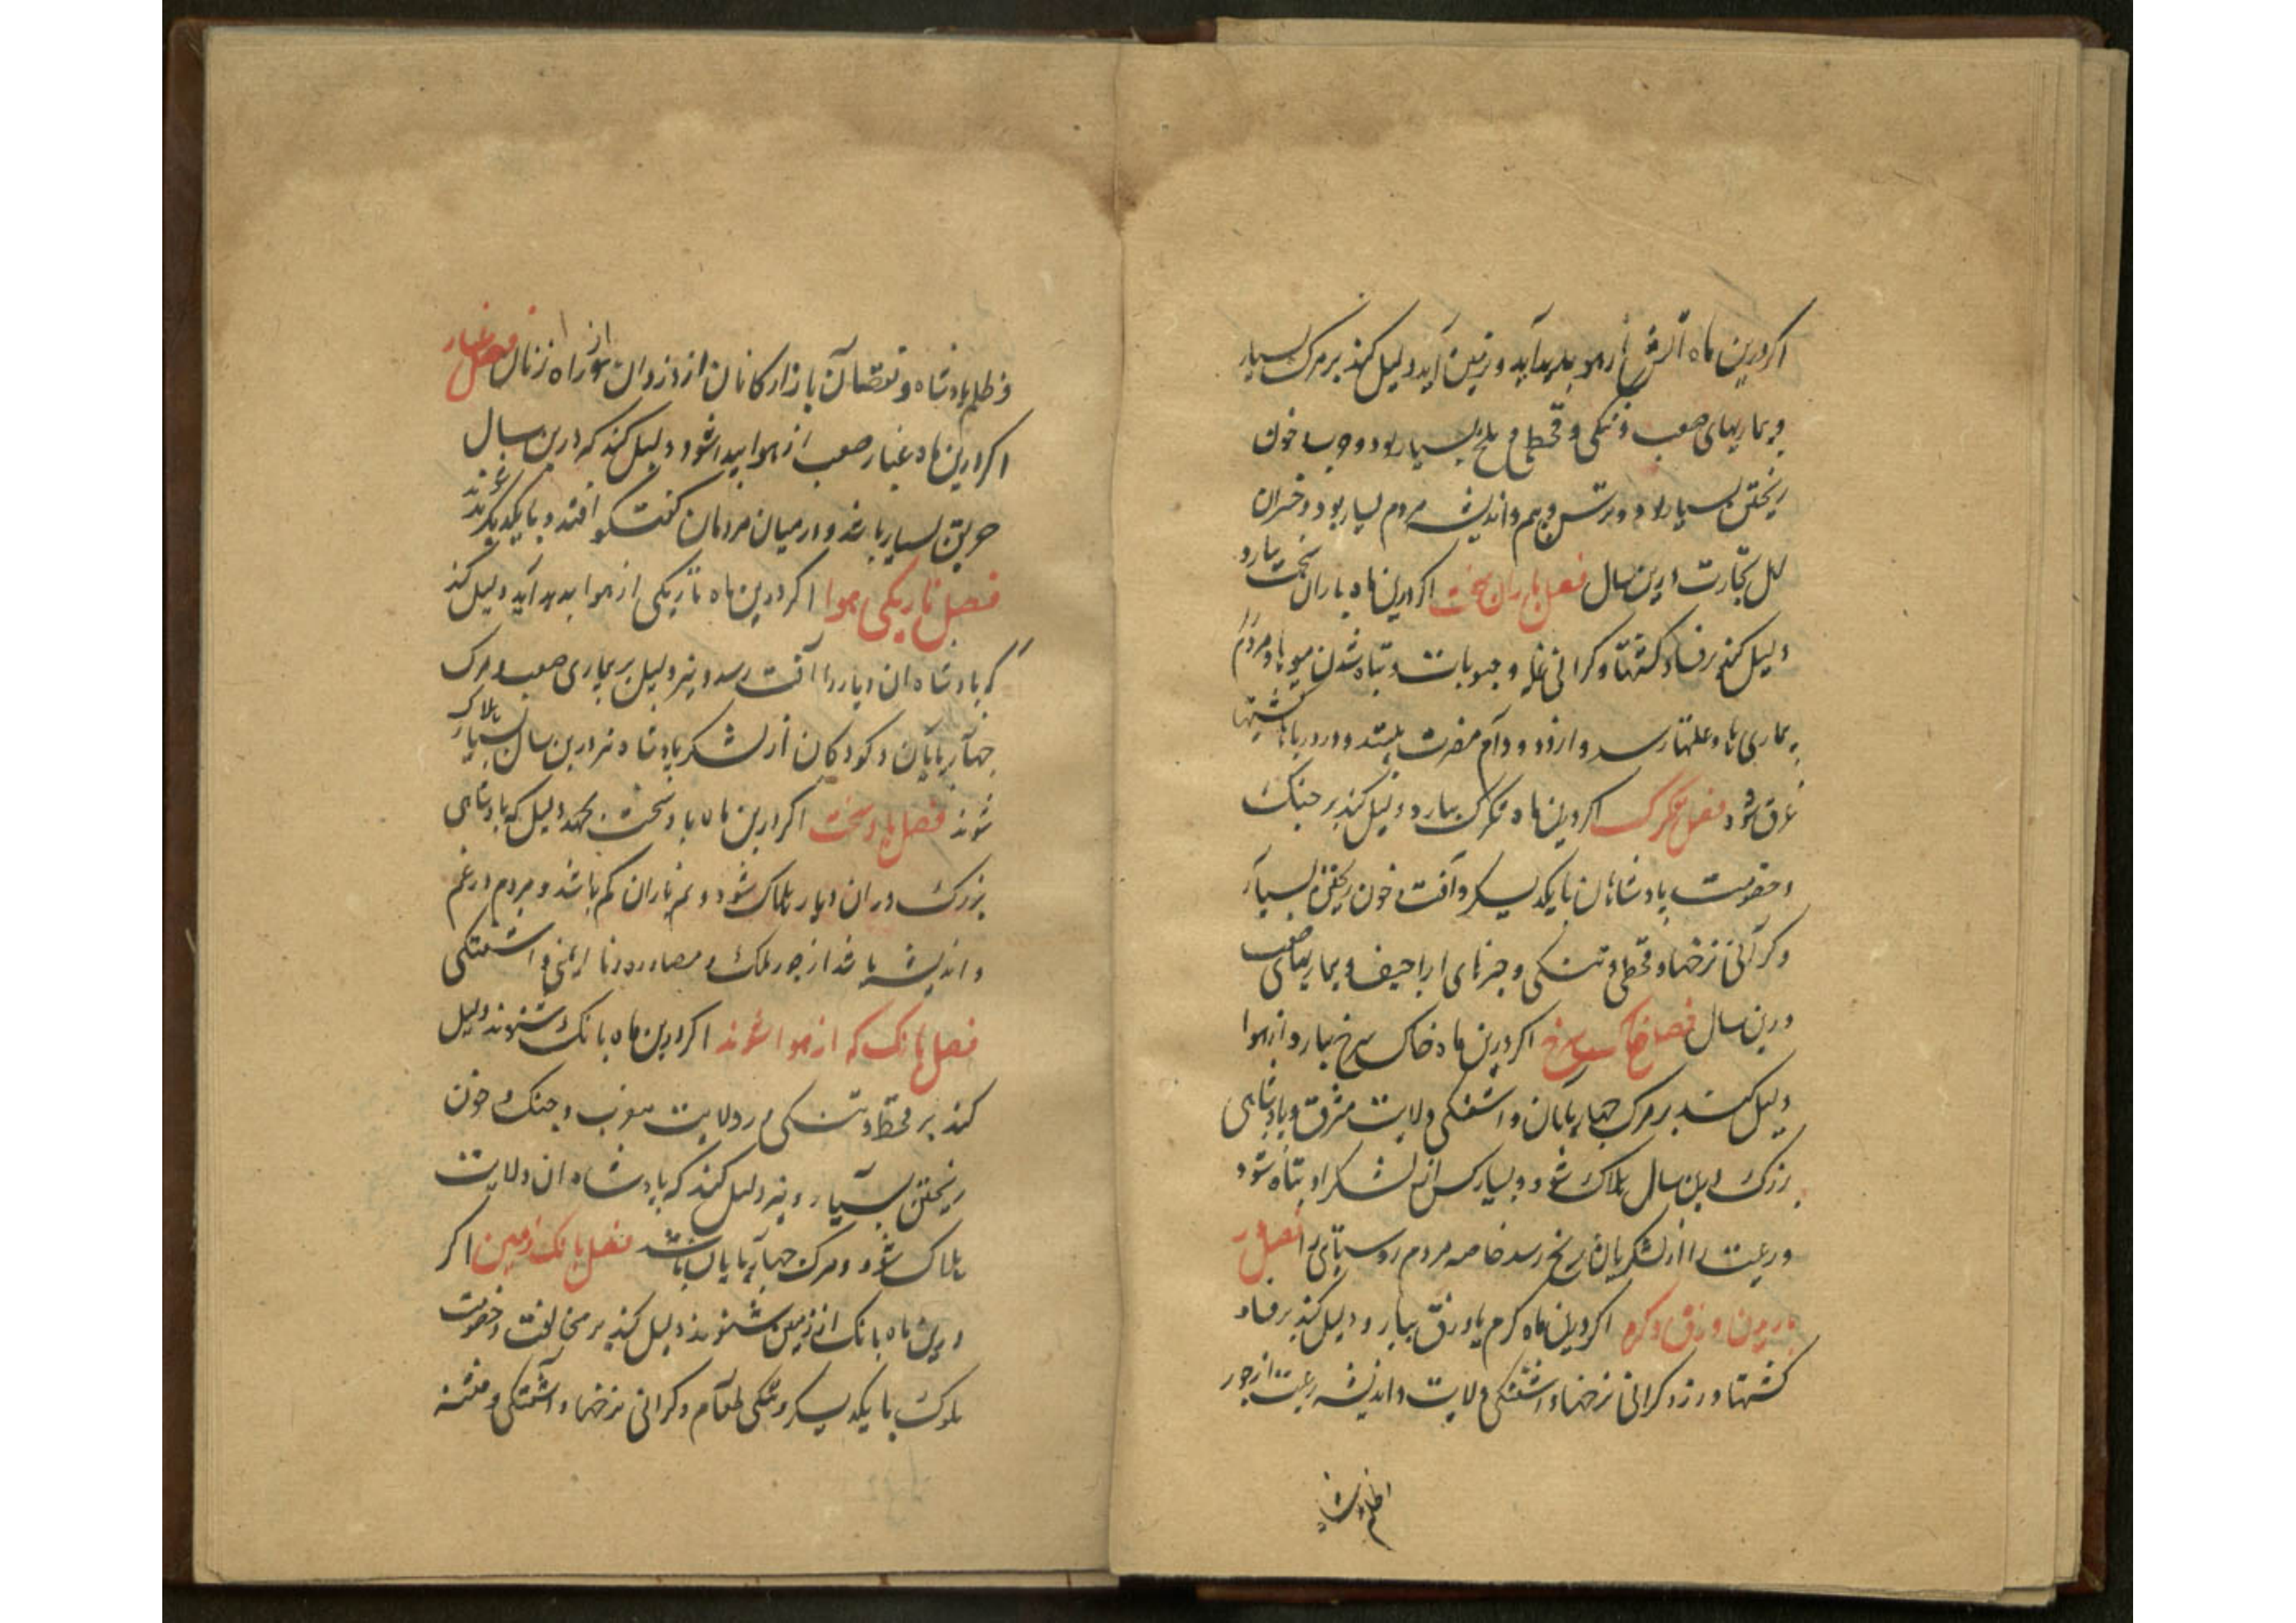 اکر درین ماه آتش از هوا پدید آید و بزمین آید دلیل کند بر مرک بسیار
و بیماریهای صعب و تنکی و قحط و ملخ بسیار بود و حرب و خون
ریختن بسیار بود و ترس و بیم و اندیشه مردم بسیار بود و خسران
اهل تجارت درین سال فصل باران سخت اکر درین ماه باران سخت بیارد
دلیل کند بر فساد کشتها و کرانی غله و حبوبات و تباه شدن میوها و مردم
بیماری ها و علتها رسد و از دد و دام مضرت بینند و در دریاها کشتیها
غرق شود فصل تکرک اکر درین ماه تکرک ببارد دلیل کند بر جنک
و خصومت پادشاهان با یکدیکر و آفت و خون ریختن بسیار
و کرانی نرخها و قحط و تنکی و خبرهای اراجیف و بیماریهای صعب
درین سال فصل خاک سرخ اکر درین ماه خاک سرخ ببارد از هوا
دلیل کند بر مرک چهارپایان و آشفتکی ولایت مشرق و پادشاهی
بزرک درین سال هلاک شود و بسیار کس از لشکر او تباه شود
و رعیت را از لشکریان رنج رسد خاصه مردم روستای را فصل در
باریدن ورق و کرم اکر درین ماه کرم یا ورق ببارد دلیل کند بر فساد
کشتها و رز و کرانی نرخها و آشفتکی ولایت و اندیشه رعیت از جور
و ظلم پادشاه
و ظلم پادشاه و نقصان بازارکانان از دزدان و از راه زنان فصل غبار
اکر درین ماه غبار صعب از هوا پیدا شود دلیل کند که درین سال
حریق بسیار باشد و در میان مردمان کفتکو افتد و با یکدیکر
فصل تاریکی هوا اکر درین ماه تاریکی از هوا پدید آید دلیل کند
که پادشاه ان دیار را آفت رسد و نیز دلیل بر بیماری صعب و مرک
چهارپایان و کودکان از لشکر پادشاه نیز درین سال بسیار هلاک
شوند فصل باد سخت اکر درین ماه باد سخت بجهد دلیل که پادشاهی
بزرک در ان دیار هلاک شود و نم باران کم باشد و مردم در غم
و اندیشه باشد از جور ملک و مصادره و نا ایمنی و آشفتکی
فصل بانک که از هوا شنوند اکر درین ماه بانک شنوند دلیل
کند بر قحط و تنکی در ولایت مغرب و جنک و خون
ریختن بسیار و نیز دلیل کند که پادشاه ان ولایت
هلاک شود و مرک چهارپایان باشد فصل بانک زمین اکر
درین ماه بانک از زمین شنوند دلیل کند بر مخالفت و خصومت
ملوک با یکدیکر و تنکی طعام و کرانی نرخها و آشفتکی و فتنه